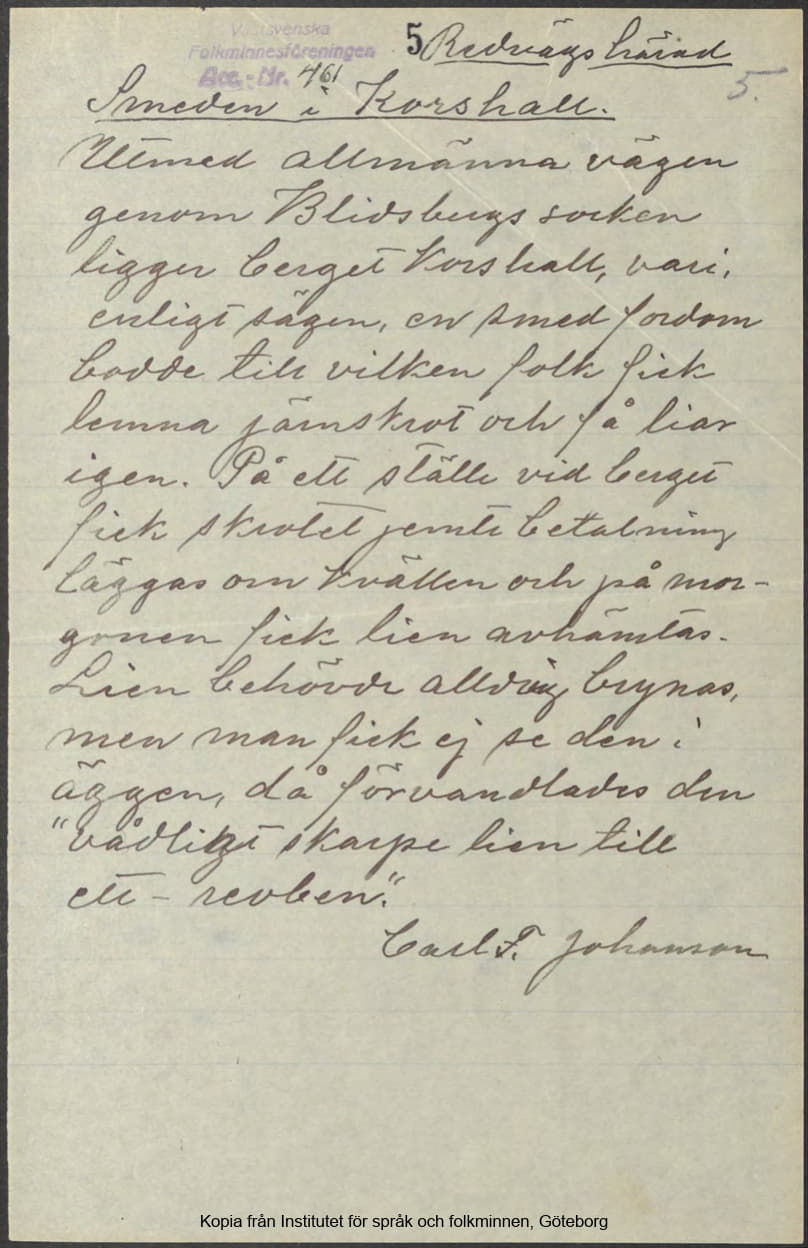 Västsvenska
Folkminnesföreningen
Acc.-Nr. 461
5 Redvägs härad
5.
Smeden i Korshall.
Utmed allmänna vägen
genom Blidsbergs socken
ligger berget Korshall, vari,
enligt sägen, en smed fordom
bodde till vilken folk fick
lemna järnskrot och få liar
igen. På ett ställe vid berget
fick skrotet jemte betalning
läggas om kvällen och på mor-
gonen fick lien avhämtas.
Lien behövde alldrig brynas,
men man fick ej se den i
äggen, då förvandlades den
"vådligt skarpe lien till
ett - revben."
Carl F. Johansson
Kopia från Institutet för språk och folkminnen, Göteborg